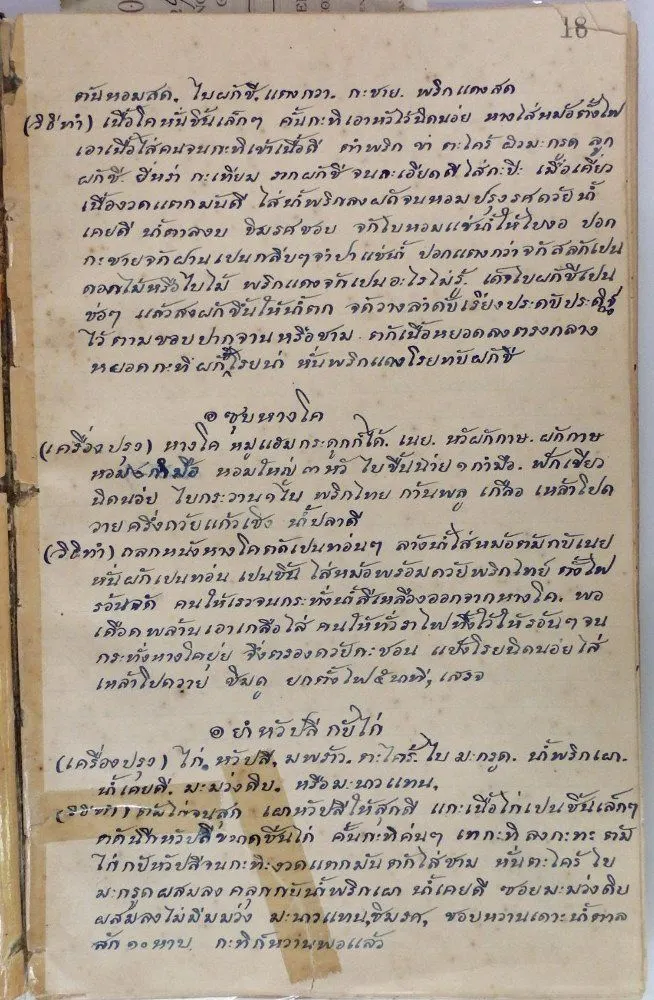 18
ต้นหอมสด. ใบผักชี. แตงกวา. กะชาย. พริกแดงสด
(วิธีทำ) เนื้อโคหั่นชิ้นเล็กๆ คั้นกะทิเอาหัวไว้นิดน่อย หางใส่หม้อตั้งไฟ
เอาเนื้อใส่คนจนกะทิเข้าเนื้อดี ตำพริก ข่า ตะไคร้ ผิวมะกรูด ลูก
ผักชี ยี่หร่า กะเทียม รากผักชี จนละเอียดดีใส่กะปิ เมื่อเคี่ยว
เนื้องวดแตกมันดี ใส่น้ำพริกลงผัดจนหอม ปรุงรศด้วยน้ำ
เคยดี น้ำตาลงบ ชิมรศชอบ จักใบหอมแช่น้ำให้ใบงอ ปอก
กะชายจักผ่านเปนกลีบๆจำปาแช่น้ำ ปอกแตงกว่าจักสลักเปน
ดอกไม้หรือใบไม้ พริกแดงจักเปนอะไรไม่รู้. เด็จใบผักชีเปน
ช่อๆ แล้วสงผักขึ้นให้น้ำตก จัดวางลำดับเรียงประดับประดิฐ
ไว้ตามขอบปากจานหรือชาม ตักเนื้อหยอดลงตรงกลาง
หยอดกะทิ ผักชีโรยน่า หั่นพริกแดงโรยทับผักชี
๏ ซุบหางโค
(เครื่องปรุง) หางโค หมูแฮมกระดูกก็ได้. เนย. หัวผักกาษ. ผักกาษ
หอม ๖ กำมือ หอมใหญ่ ๓ หัว ใบขึ้นน่าย ๑ กำมือ. ฟักเขียว
นิดน่อย ใบกระวาน ๑ ใบ พริกไทย ก้านพลู เกลือ เหล้าโปด
วายครึ่งถ้วยแก้วเชิง น้ำปลาดี
(วิธีทำ) ถลกหนังหางโคตัดเปนท่อนๆ ล้างน้ำใส่หม้อต้มกับเนย
หั่นผักเปนท่อน เปนชิ้น ใส่หม้อพร้อมด้วยพริกไทย ตั้งไฟ
ร้อนจัด คนให้เราจนกระทั่งน้ำสีเหลืองออกจากหางโค. พอ
เดือดพล้านเอาเกลือใส่ คนให้ทั่วราไฟทิ้งไว้ให้ร้อนๆ จน
กระทั่งหางโคยุ่ย จึ่งตรองด้วยกะชอน แป้งโรยนิดน่อยใส่
เหล้าโปดวาย ชิมดู ยกตั้งไฟ ๕ นาที, เสรจ
๏ ยำหัวปลี กับไก่
(เครื่องปรุง) ไก่. หัวปลี. มพร้าว. ตะไคร้. ใบ มะกรูด. น้ำพริกเผา.
น้ำเคยดี. มะม่วงดิบ. หรือมะนาวแทน.
(วิธีทำ) ต้มไก่จนสุก เผาหัวปลีให้สุกดี แกะเนื้อไก่เปนชิ้นเล็กๆ
ฉีกหัวปลีขนาดชิ้นไก่ คั้นกะทิคนๆ เทกะทิลงกะทะ ต้ม
ไก่กับหัวปลีจนกะทิงวดแตกมัน ตักใส่ชาม หั่นตะไคร้ ใบ
มะกรูดผสมลง คลุกกับน้ำพริกเผา น้ำเคยดี ซอยมะม่วงดิบ
ผสมลงไม่มีมม่วง มะนาวแทน, ชิมรศ, ชอบหวานเดาะน้ำตาล
สัก ๑๐ หาบ กะทิก็หวานพอแล้ว